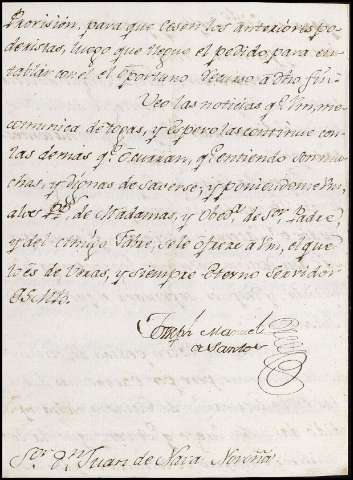 Provision, para que cesen los anteriores po-
deristas, luego que llegue el pedido para en-
tablar con el el oportuno recurso a dho fin.
Veo las noticias q.e Vm. me
comunica de y espero las continue con
las demas q.e ocurran, q.e entiendo son mu-
chas, y dignas de saverse; y poniendome Vm.
a los P.es de Madamas, y de Ser. Padre,
y del Amigo se le ofreze a Vm. el que
lo es de Veras, y siempre eterno servidor
Q.S.M.B.
Joseph Manuel
a Santos
S.or D.n Juan de Nava Noroña